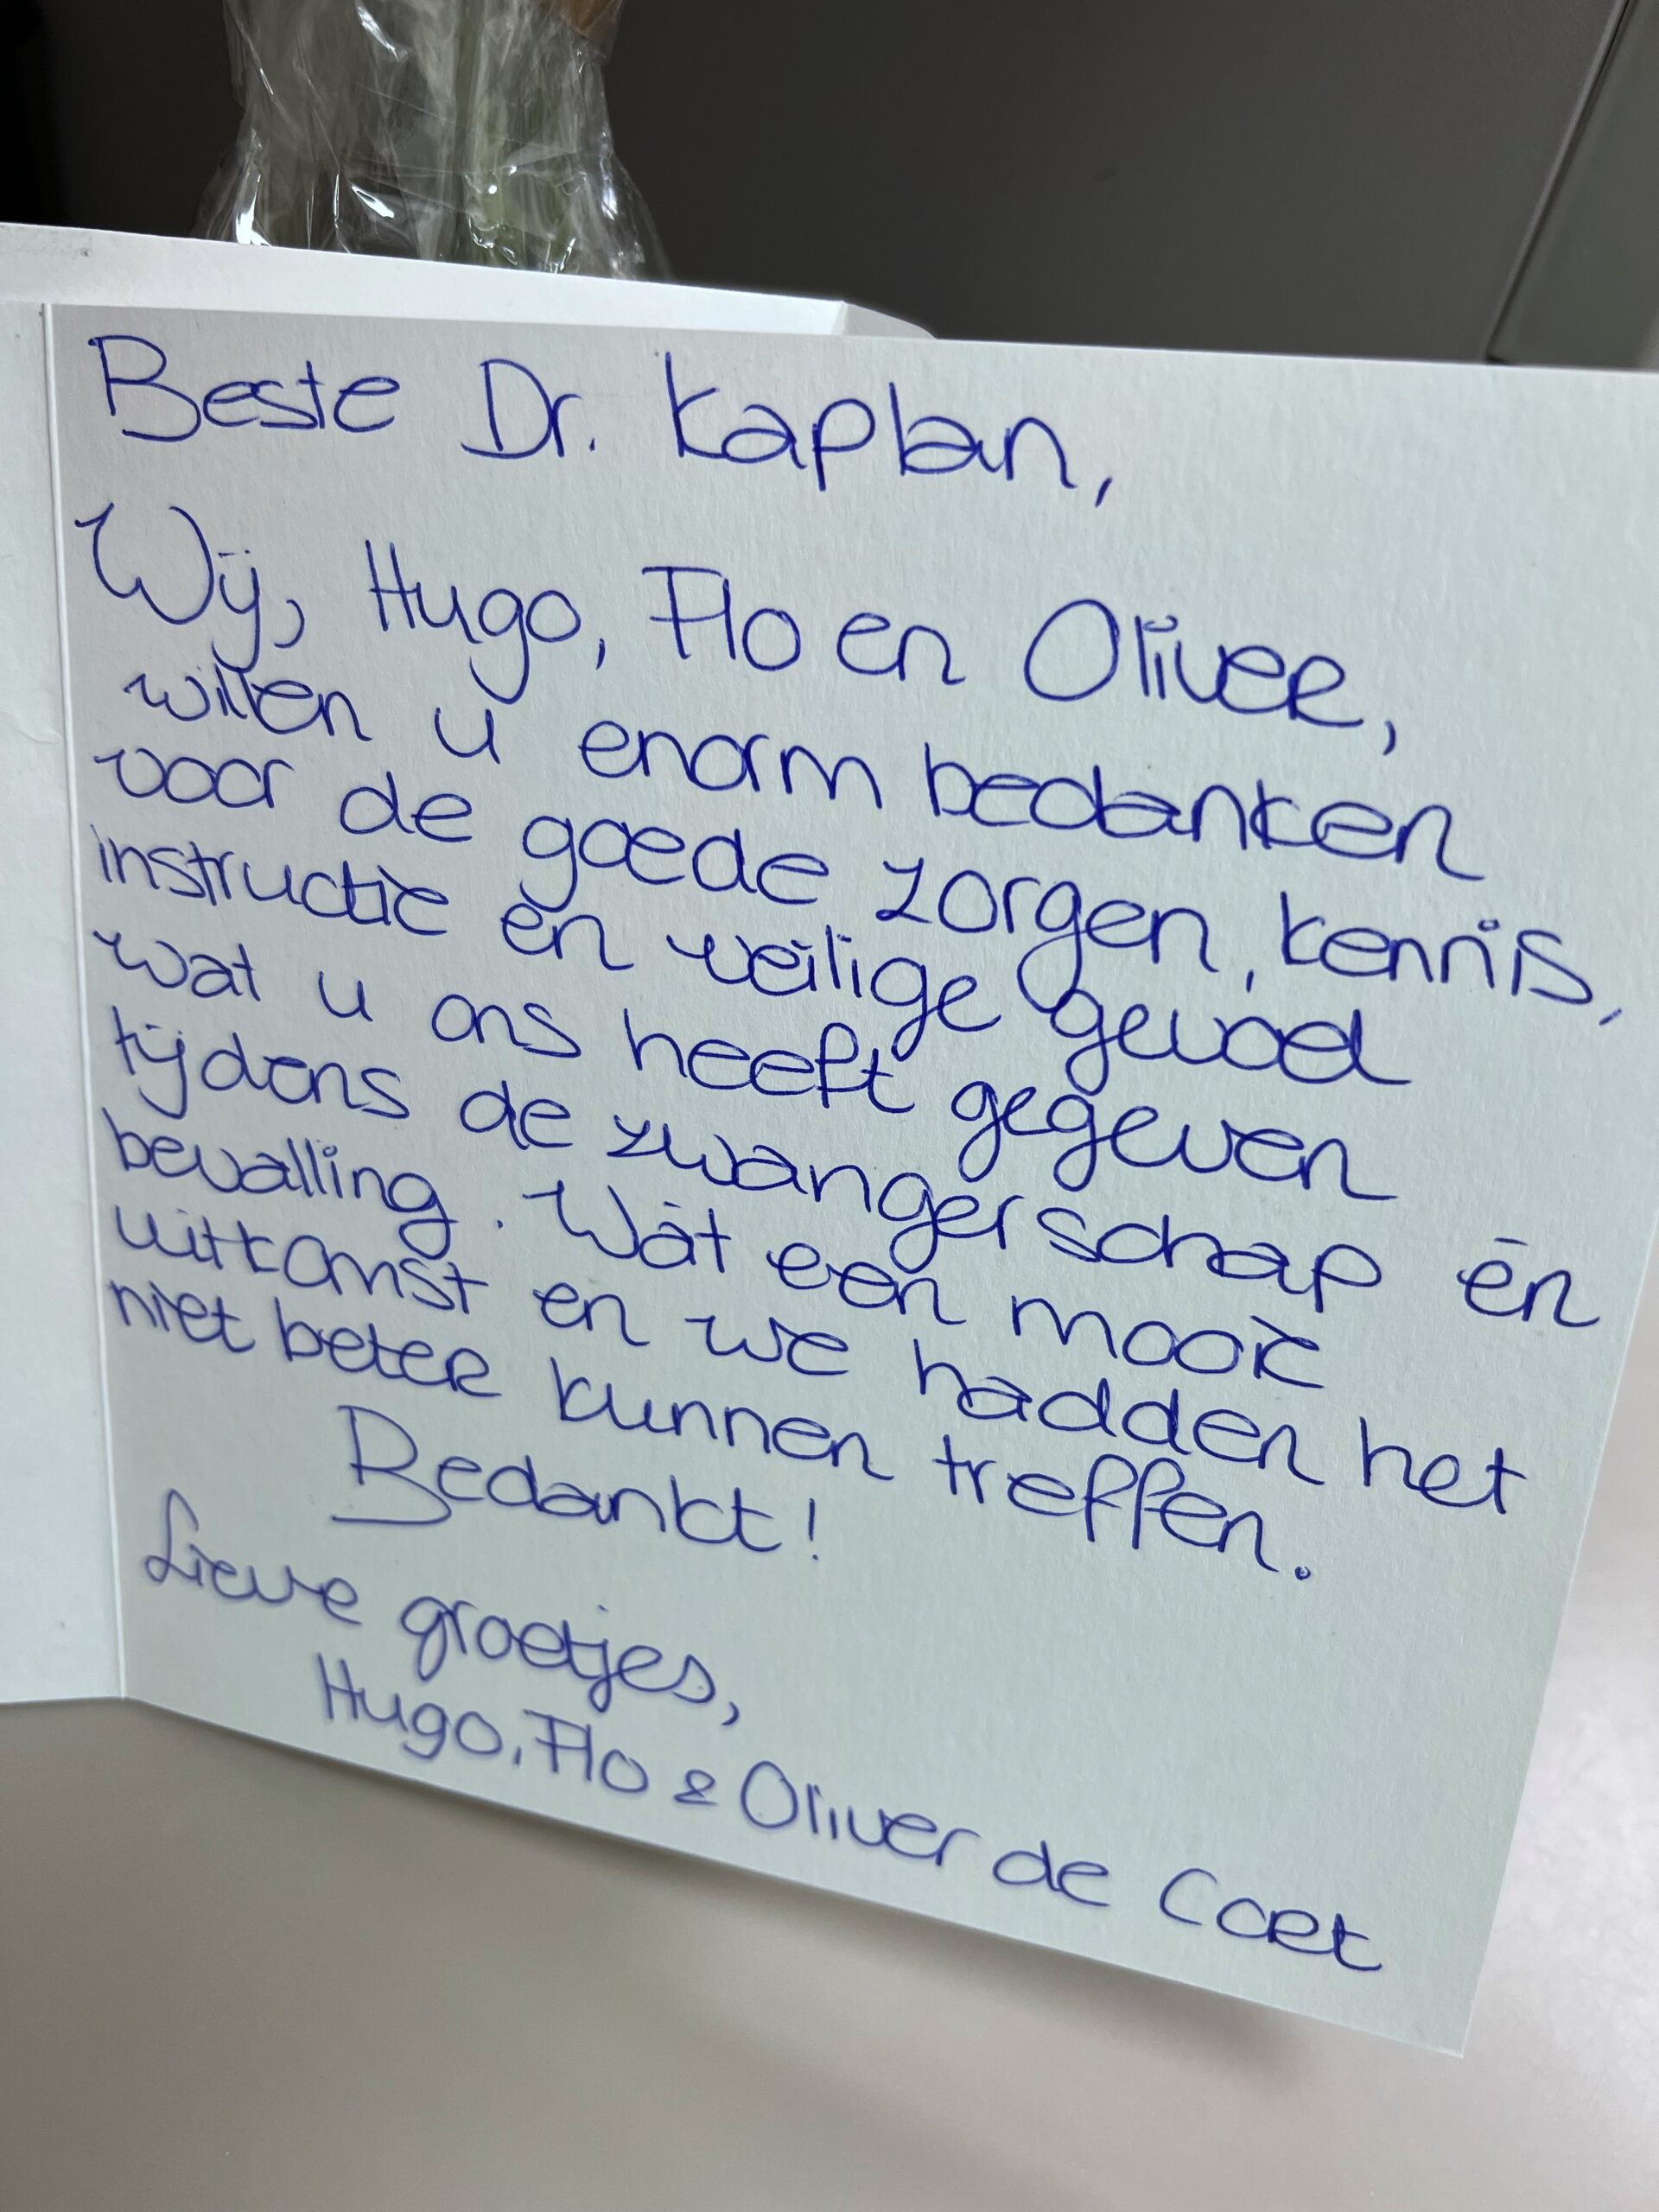 Beste Dr. Kaplan,
Wij, Hugo, Flo en Oliver,
willen u enorm bedanken
voor de goede zorgen, kennis,
instructie én veilige gevoel
wat u ons heeft gegeven
tijdens de zwangerschap én
bevalling. Wát een mooie
uitkomst en we hadden het
niet beter kunnen treffen.
Bedankt!
Lieve groetjes,
Hugo, Flo & Oliver de Coet